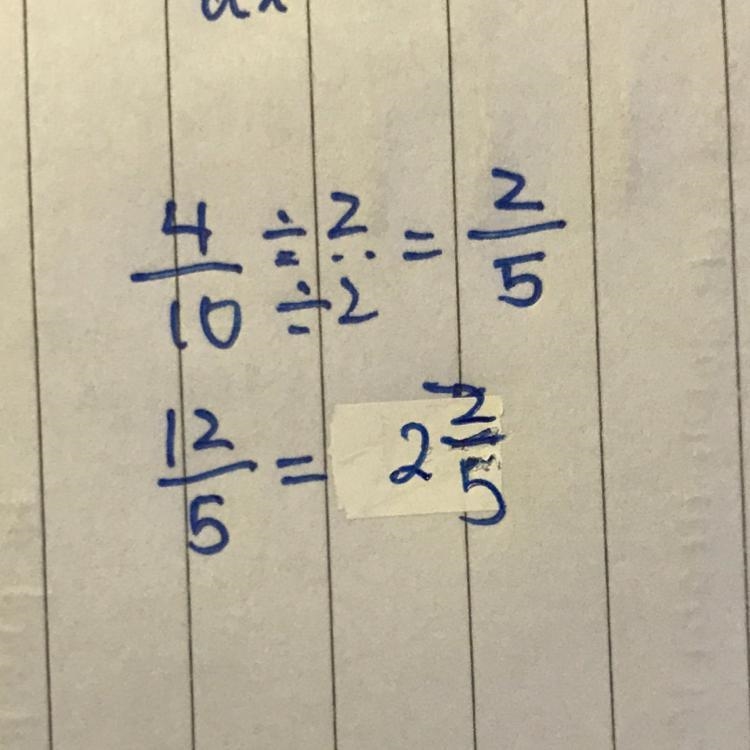 4/10 ÷2/÷2 = 2/5
12/5 = 2 2/5